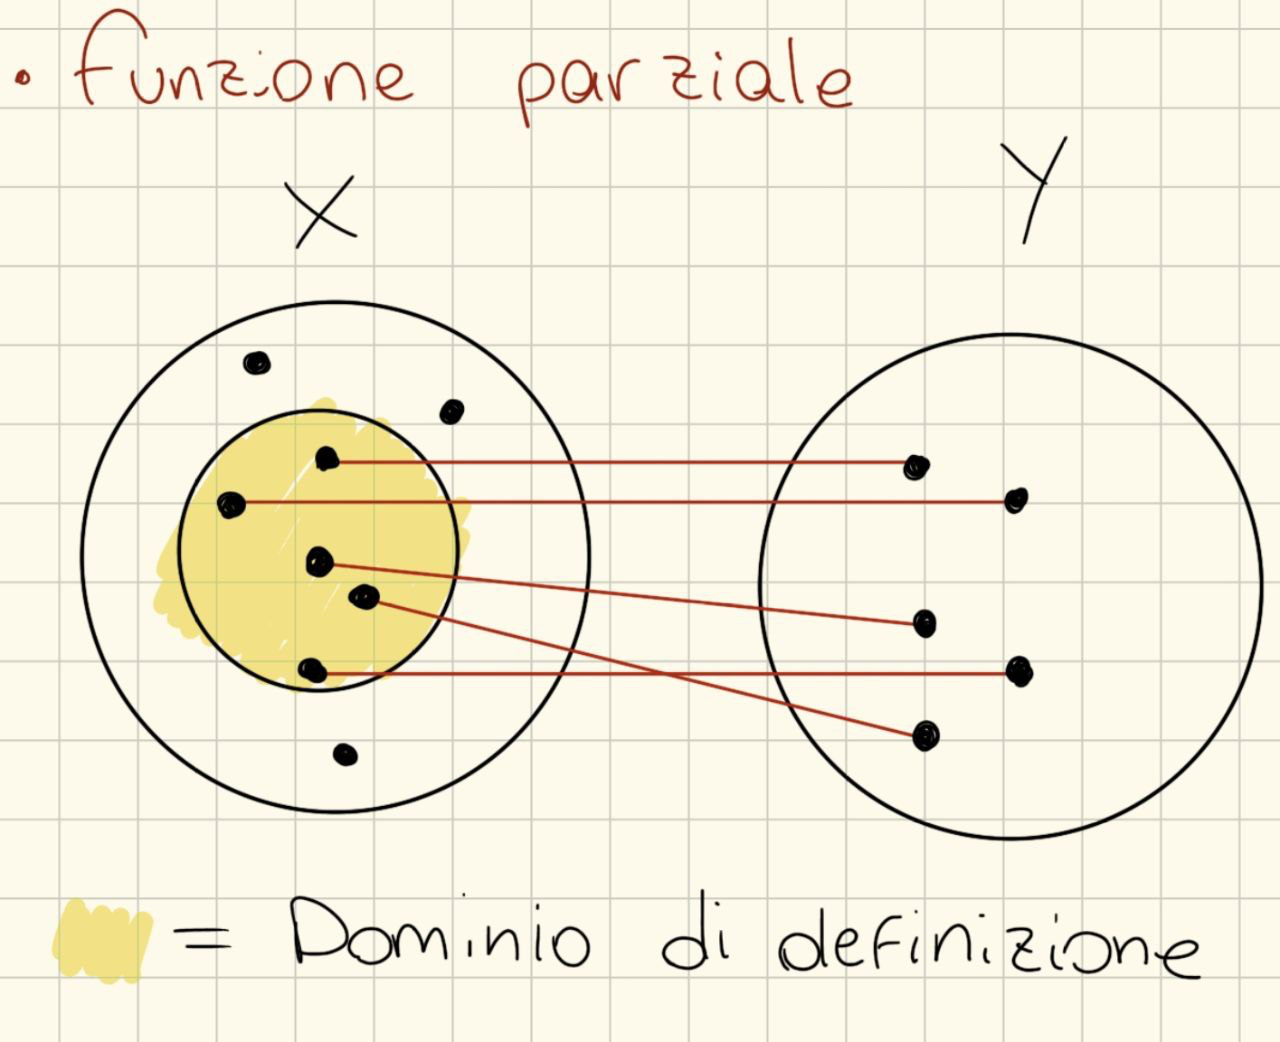 • funzione parziale
X Y
= Dominio di definizione